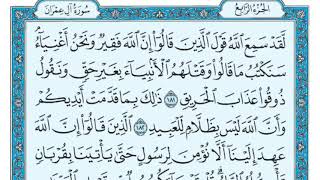 الجزء الرابع
سورة آل عمران
لَّقَدْ سَمِعَ ٱللَّهُ قَوْلَ ٱلَّذِينَ قَالُوٓا۟ إِنَّ ٱللَّهَ فَقِيرٌ وَنَحْنُ أَغْنِيَآءُ
سَنَكْتُبُ مَا قَالُوا۟ وَقَتْلَهُمُ ٱلْأَنۢبِيَآءَ بِغَيْرِ حَقٍّ وَنَقُولُ
ذُوقُوا۟ عَذَابَ ٱلْحَرِيقِ ١٨١ ذَٰلِكَ بِمَا قَدَّمَتْ أَيْدِيكُمْ
وَأَنَّ ٱللَّهَ لَيْسَ بِظَلَّامٍ لِّلْعَبِيدِ ١٨٢ ٱلَّذِينَ قَالُوٓا۟ إِنَّ ٱللَّهَ
عَهِدَ إِلَيْنَآ أَلَّا نُؤْمِنَ لِرَسُولٍ حَتَّىٰ يَأْتِيَنَا بِقُرْبَانٍ